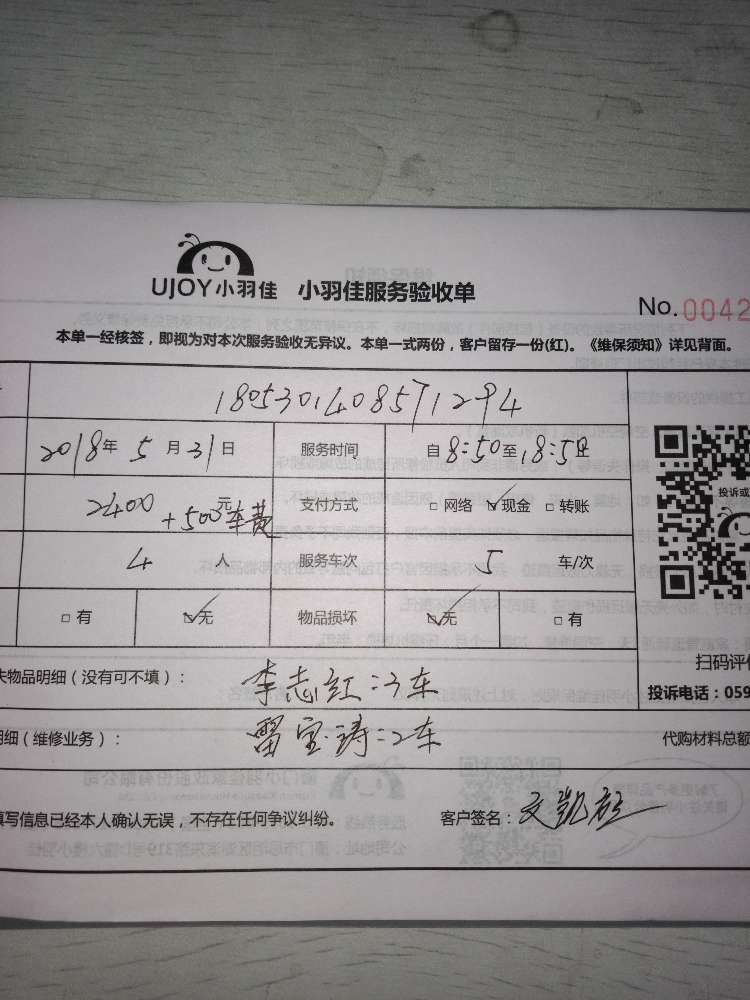 UJOY小羽佳 小羽佳服务验收单
No.0042
本单一经核签，即视为对本次服务验收无异议。本单一式两份，客户留存一份(红)。《维保须知》详见背面。
1805301408571294
2018年 5月31日 服务时间 自8:50至18:50
2400+500元车费 支付方式 □ 网络 ☑现金 □ 转账
投诉或
4 人 服务车次 5 车/次
□ 有 ☑无 物品损坏 ☑无 □ 有
扫码评价
失物品明细（没有可不填）： 李志红:3车
投诉电话：059
明细（维修业务）： 雷宝涛:2车
代购材料总额
填写信息已经本人确认无误，不存在任何争议纠纷。 客户签名：